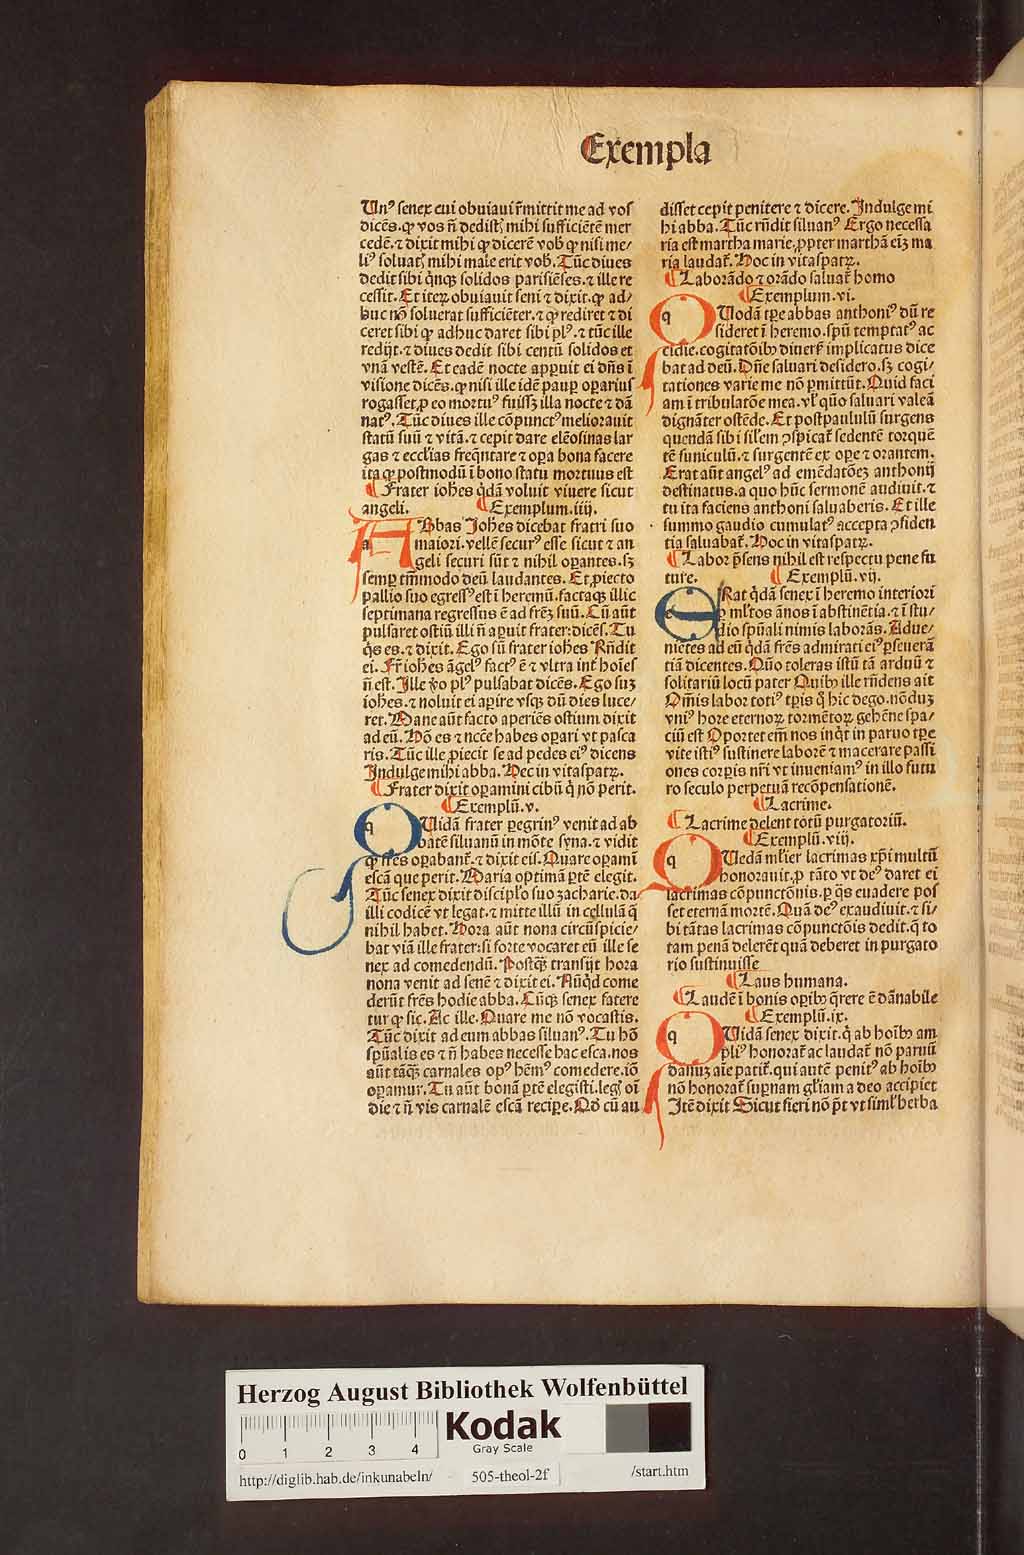 Exempla
Un⁹ senex cui obuiaui r̄mittit me ad vos
dicēs. ꝙ vos nō dedistꝭ mihi sufficiētē mer
cedē. ⁊ dixit mihi ꝙ dicerē vob̄ ꝙ nisi me/
li⁹ soluatꝭ mihi male erit vob̄. Tūc diues
dedit sibi q̄nꝗ solidos parisiēses. ⁊ ille re
cessit. Et iteꝝ obuiauit seni ⁊ dixit. ꝙ ad/
huc nō soluerat sufficiēter. ⁊ ꝙ rediret ⁊ di
ceret sibi ꝙ adhuc daret sibi pl⁹. ⁊ tūc ille
redijt. ⁊ diues dedit sibi centū solidos et
vnā vestē. Et eadē nocte apꝑuit ei dn̄s ī
visione dicēs. ꝙ nisi ille idē pauꝑ oꝑarius
rogasset ꝓ eo mortu⁹ fuissꝫ illa nocte ⁊ dā
nat⁹. Tūc diues ille cōpunct⁹ meliorauit
statū suū ⁊ vitā. ⁊ cepit dare elēosinas lar
gas ⁊ eccl̄ias freq̄ntare ⁊ oꝑa bona facere
ita ꝙ postmodū ī bono statu mortuus est
¶ Frater ioh̄es q̄dā voluit viuere sicut
angeli. ¶ Exemplum. iiij.
a
ABbas Joh̄es dicebat fratri suo
maiori. vellē secur⁹ esse sicut ⁊ an
geli securi sūt ⁊ nihil oꝑantes. sꝫ
semꝑ tm̄modo deū laudantes. Et ꝓiecto
pallio suo egress⁹ est ī heremū. factaqꝫ illic
septimana regressus ē ad fr̄eꝫ suū. Cū aūt
pulsaret ostiū illi nō aꝑuit frater: dicēs. Tu
q̄s es. ⁊ dixit. Ego sū frater iohes R̄ndit
ei. Fr̄ ioh̄es āgel⁹ fact⁹ ē ⁊ vltra int̄ hoīes
nō est. Ille v̄o pl⁹ pulsabat dicēs. Ego suꝫ
ioh̄es. ⁊ noluit ei aꝑire vsqꝫ dū dies luce/
ret. Mane aūt facto aperiēs ostium dixit
ad eū. Hō es ⁊ nc̄ce habes oꝑari vt pasca
ris. Tūc ille ꝓiecit se ad pedes ei⁹ dicens
Indulge mihi abba. Hec in vitaspatꝝ.
¶ Frater dixit oꝑamini cibū q̇ nō perit.
¶ Exemplū. v.
q
QUidā frater ꝑegrin⁹ venit ad ab
batē siluanū in mōte syna. ⁊ vidit
ꝙ fr̄es oꝑabant̄. ⁊ dixit eis. Quare oꝑamī
escā que perit. Maria optimā ꝑtē elegit.
Tūc senex dixit discipl̄o suo zacharie. da
illi codicē vt legat. ⁊ mitte illū in cellulā q̄
nihil habet. Hora aūt nona circūspicie/
bat viā ille frater: si forte vocaret eū ille se
nex ad comedendū. Postqꝫ transijt hora
nona venit ad senē ⁊ dixit ei. Nūq̇d come
derūt fr̄es hodie abba. Cūqꝫ senex fatere
tur ꝙ sic. Ac ille. Quare me nō vocastis.
Tūc dixit ad eum abbas siluan⁹. Tu hō
sp̄ualis es ⁊ nō habes necesse hac esca. nos
aūt tāqꝫ carnales op⁹ hēm⁹ comedere. iō
oꝑamur. Tu aūt bonā ꝑtē elegisti. legꝭ oī
die ⁊ nō vis carnalē escā reciꝑe. Qd̄ cū au
disset cepit penitere ⁊ dicere. Indulge mi
hi abba. Tūc rn̄dit siluan⁹ Ergo necessa
ria est martha marie. ꝓpter marthā eīꝫ ma
ria laudat̄. Hoc in vitaspatꝝ.
¶ Laborādo ⁊ orādo saluat̄ homo
¶ Exemplum. vi.
q
QUodā tꝑe abbas anthoni⁹ dū re
sideret ī heremo. spū temptat⁹ ac
cidie. cogitatōibꝫ diuers̄ implicatus dice
bat ad deū. Dn̄e saluari desidero. sꝫ cogi/
tationes varie me nō ꝑmittūt. Quid faci
am ī tribulatōe mea. vl̄ quō saluari valeā
dignāter ostēde. Et postpaululū surgens
quendā sibi sil̄em ꝯspicat̄ sedentē torquē
tē funiculū. ⁊ surgentē ex oꝑe ⁊ orantem.
Erat aūt angel⁹ ad emēdatōeꝫ anthonij
destinatus. a quo hūc sermonē audiuit. ⁊
tu ita faciens anthoni saluaberis. Et ille
summo gaudio cumulat⁹ accepta ꝯfiden
tia saluabat̄. Hoc in vitaspatꝝ.
¶ Labor p̄sens nihil est respectu pene fu
ture. ¶ Exemplū. vij.
e
ERat q̄dā senex ī heremo interiori
ꝑ ml̄tos ānos ī abstinētia. ⁊ ī stu/
dio sp̄uali nimis laborās. Adue/
niētes ad eū q̄dā fr̄es admirati ei⁹ ꝑseuerā
tiā dicentes. Quō toleras istū tā arduū ⁊
solitariū locū pater Quibꝫ ille rn̄dens ait
Om̄is labor toti⁹ tꝑis q̇ hic dego. nō duꝫ
vni⁹ hore eternoꝝ tormētoꝝ gehēne spa/
ciū est Oportet em̄ nos inq̇t in paruo tꝑe
vite isti⁹ sustinere laborē ⁊ macerare passi
ones corꝑis nr̄i vt inueniam⁹ in illo futu
ro seculo perpetuā recōpensationē.
¶ Lacrime.
¶ Lacrime delent totū purgatoriū.
¶ Exemplū. viij.
q
QUedā ml̄ier lacrimas xp̄i multū
honorauit. ꝓ tāto vt de⁹ daret ei
lacrimas cōpunctōnis. ꝑ q̄s euadere pos
set eternā mortē. Quā de⁹ exaudiuit. ⁊ si/
bi tātas lacrimas cōpunctōis dedit. q̄ to
tam penā delerēt quā deberet in purgato
rio sustinuisse
¶ Laus humana.
¶ Laudē ī bonis oꝑibꝫ q̄rere ē dānabile
¶ Exemplū. ix.
q
QUidā senex dixit. q̇ ab hoībꝫ am
pli⁹ honorat̄ ac laudat̄ nō paruū
damnuꝫ aīe patit̄. qui autē penit⁹ ab hoībꝫ
nō honorat̄ suꝑnam gl̄iam a deo accipiet
Itē dixit Sicut fieri nō pōt vt siml̄ herba
Herzog August Bibliothek Wolfenbüttel
0 1 2 3 4
Kodak
Gray Scale
http://diglib.hab.de/inkunabeln/ 505-theol-2f /start.htm